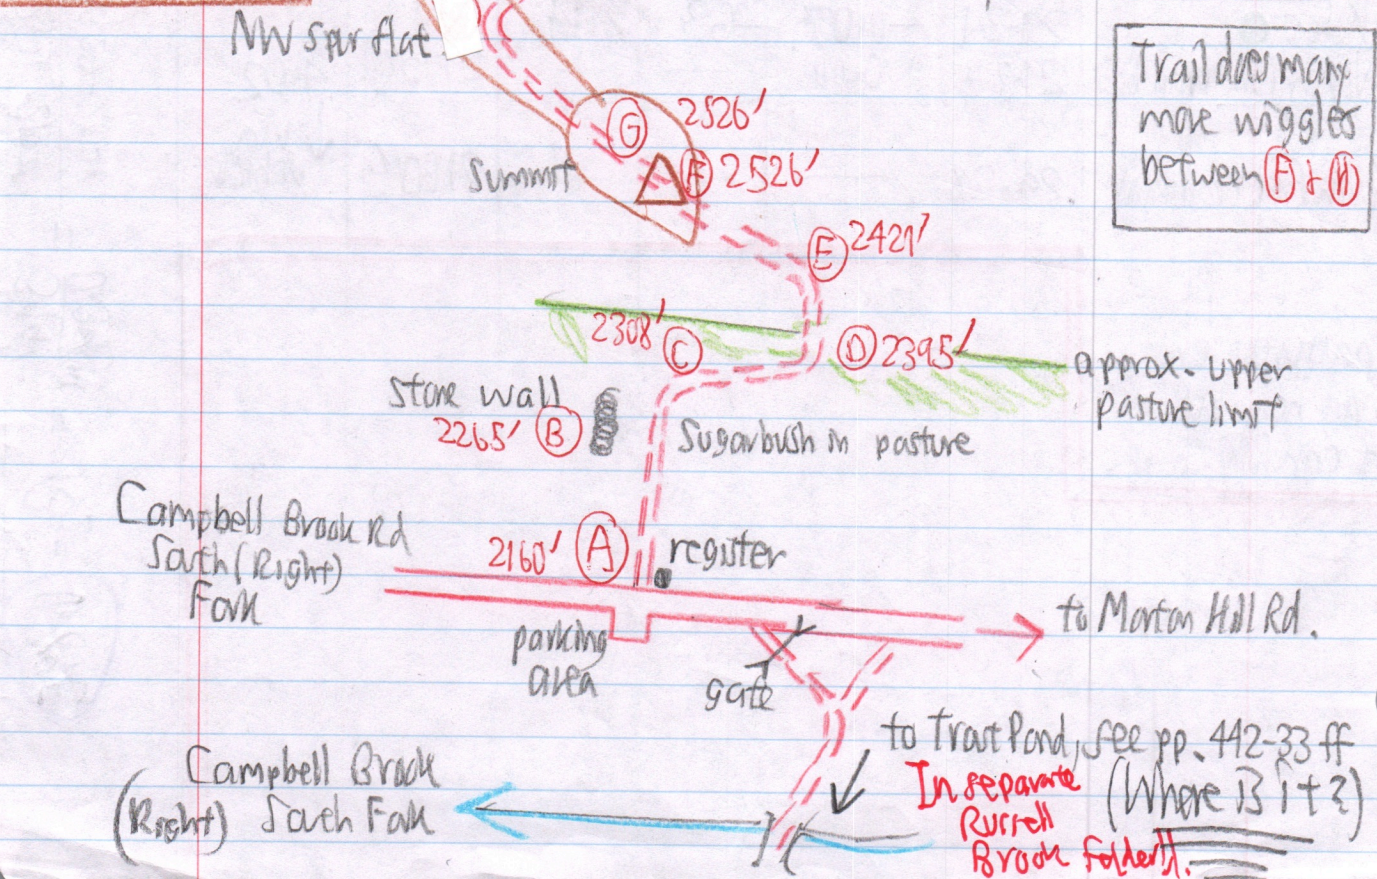 NW spur flat
Trail does many
more wiggles
between F & H
G 2526'
Summit
F 2526'
E 2421'
2308'
C
D 2395'
approx. upper
pasture limit
Stone wall
2265' B
Sugarbush in pasture
Campbell Brook Rd
South (Right)
Fork
2160' A
register
to Morton Hill Rd.
parking
area
gate
to Trout Pond, see pp. 442-33 ff
(Where is it?)
In separate
Russell
Brook folder!!
Campbell Brook
(Right) South Fork